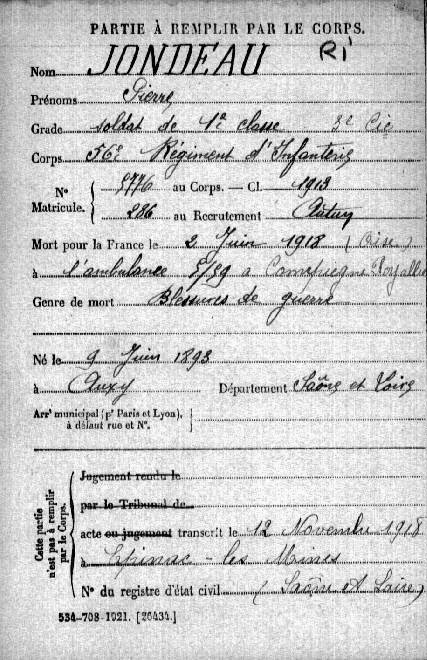 PARTIE À REMPLIR PAR LE CORPS.
Nom JONDEAU RI
Prénoms Pierre
Grade soldat de 1e classe 3e Cie
Corps 56e Régiment d'Infanterie
N° Matricule. 5776 au Corps. — Cl. 1913
286 au Recrutement Autun
Mort pour la France le 2 Juin 1918 (Oise)
à l'ambulance 5/39 a Compiegne Royallieu
Genre de mort Blessures de guerre
Né le 9 Juin 1893
à Auxy Département Saône et Loire
Arrt municipal (pr Paris et Lyon), à défaut rue et N°.
Cette partie n'est pas à remplir par le Corps.
Jugement rendu le
par le Tribunal de
acte ou jugement transcrit le 12 Novembre 1918
à Epinac-les Mines
N° du registre d'état civil (Saône et Loire)
534-708-1921. [26434.]